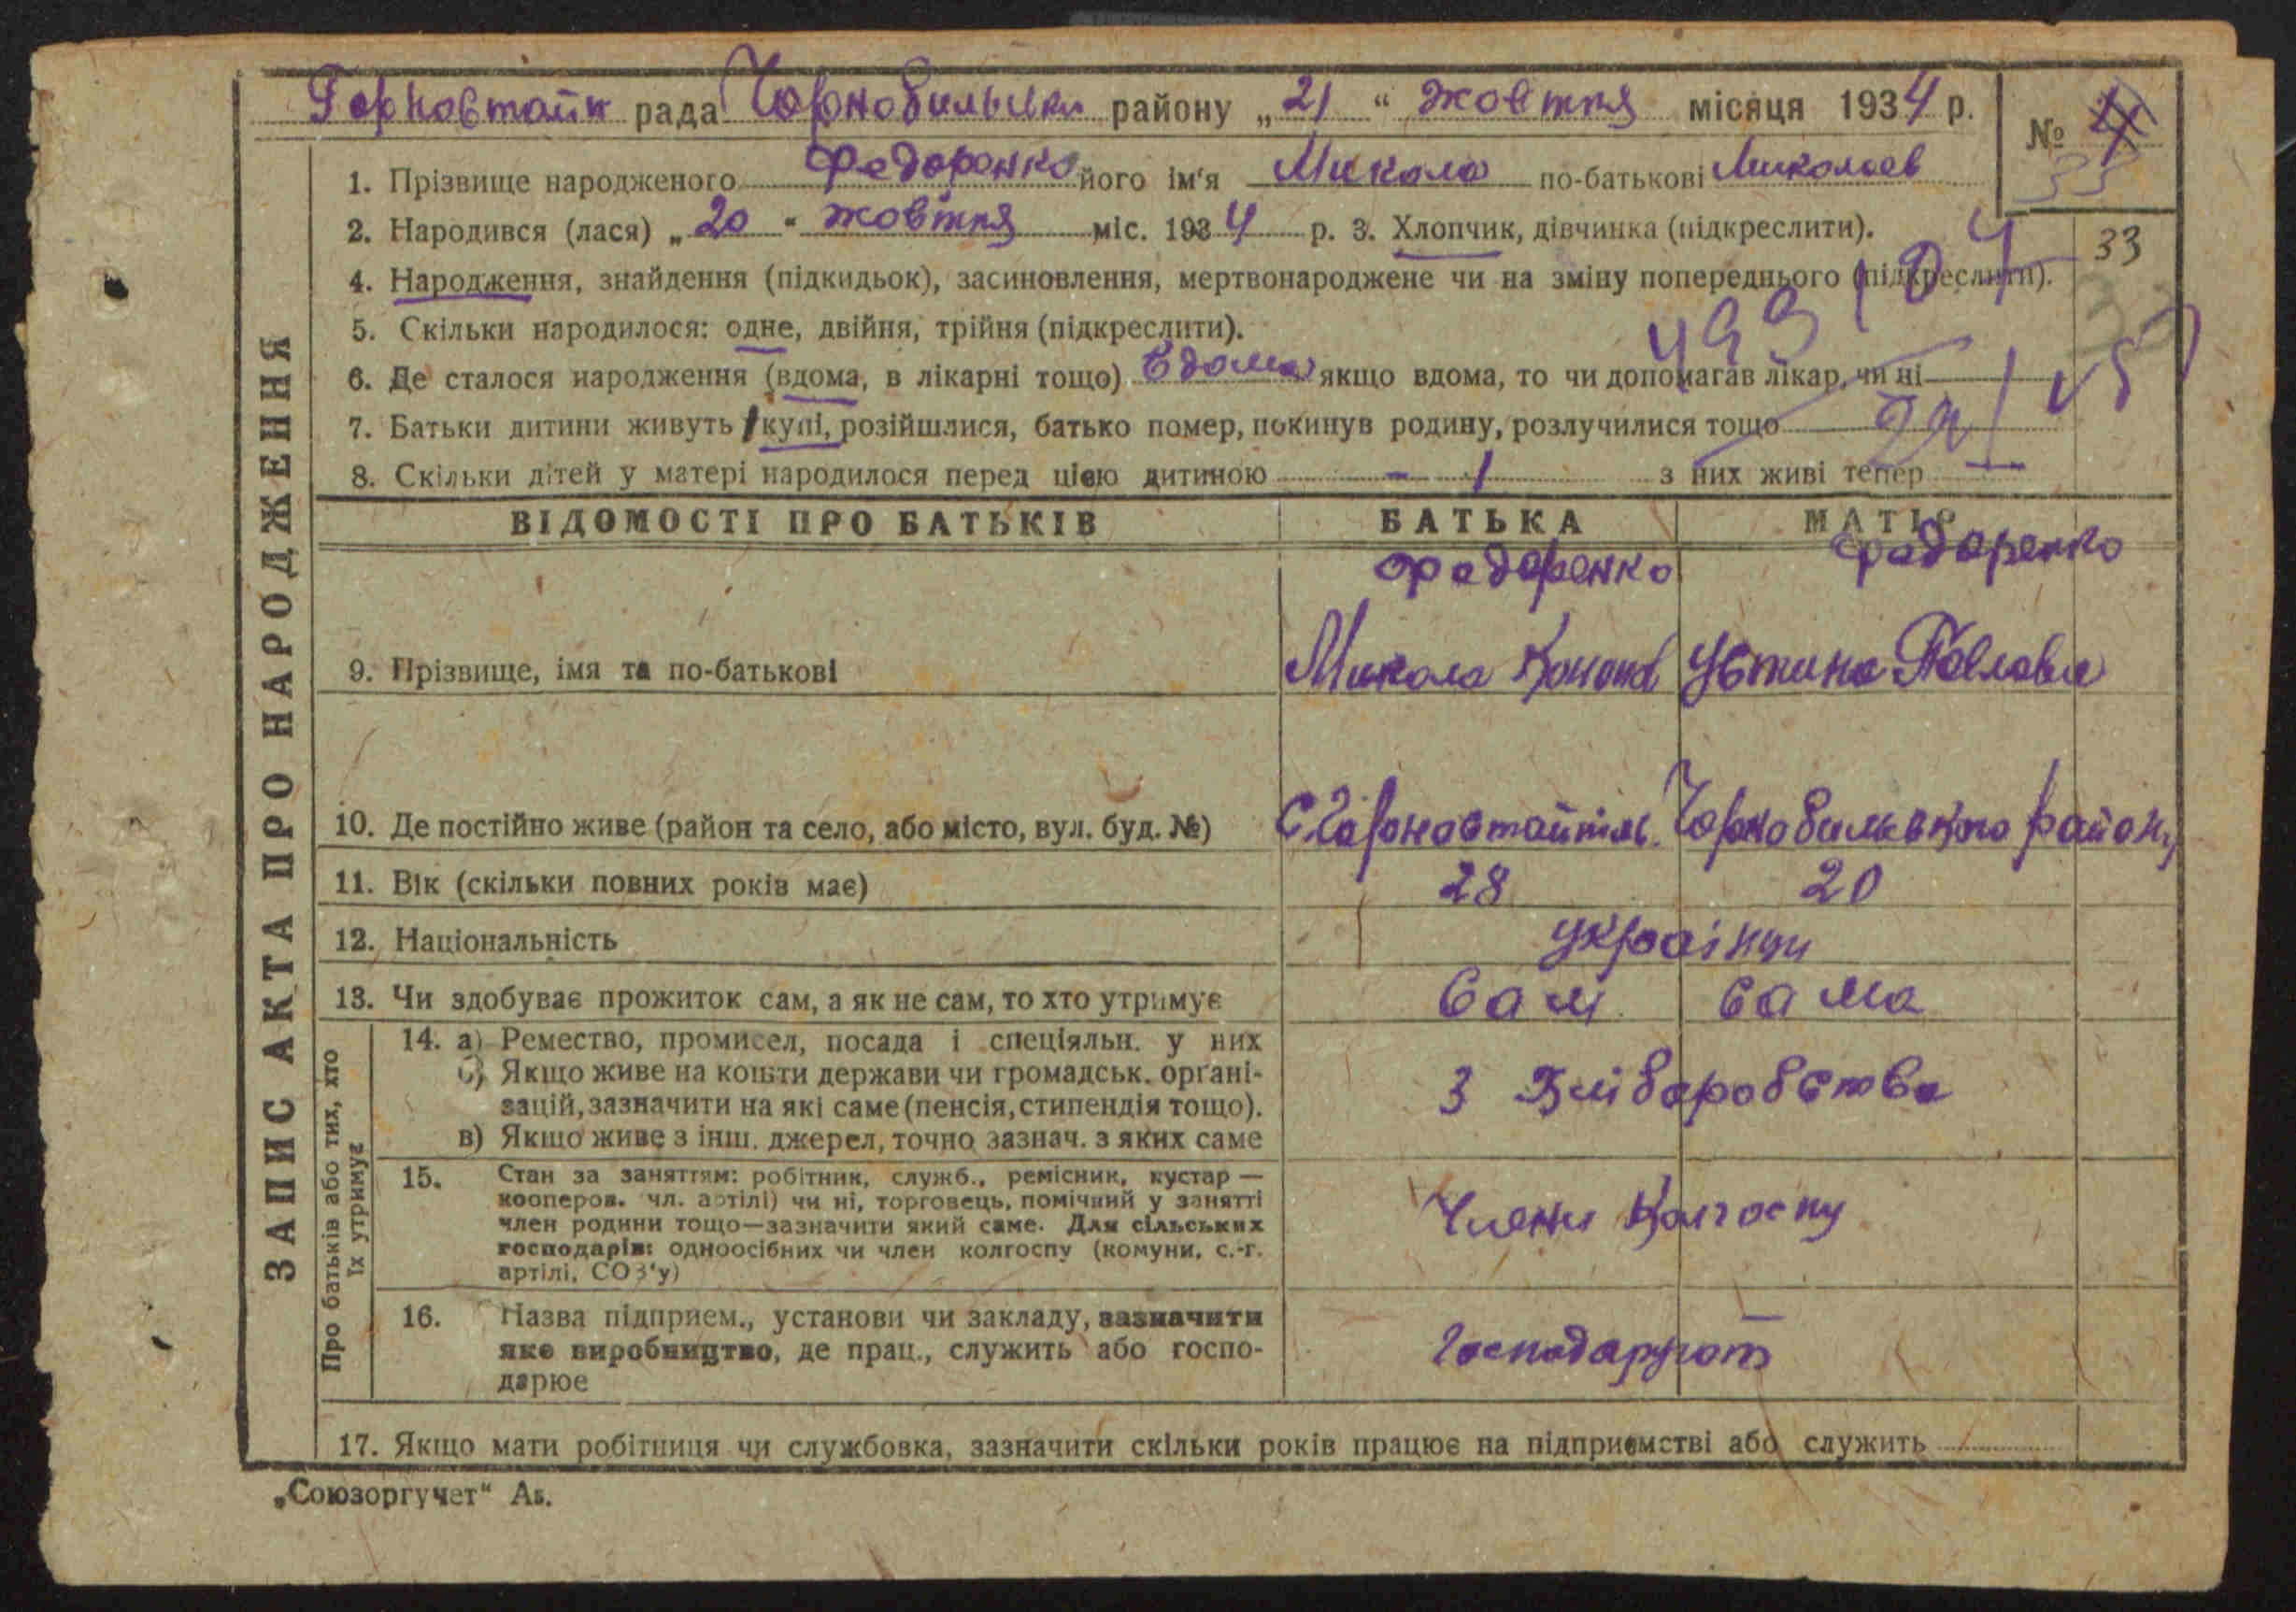 Горновтайп рада Чорнобильськ району „21“ жовтня місяця 1934 р.
№ 4
33
1. Прізвище народженого Федоренко його ім'я Микола по-батькові Миколаєв
2. Народився (лася) „20“ жовтня міс. 1934 р. 3. Хлопчик, дівчинка (підкреслити).
33
4. Народження, знайдення (підкидьок), засиновлення, мертвонароджене чи на зміну попереднього (підкреслити).
5. Скільки народилося: одне, двійня, трійня (підкреслити).
6. Де сталося народження (вдома, в лікарні тощо) вдома якщо вдома, то чи допомагав лікар, чи ні
7. Батьки дитини живуть вкупі, розійшлися, батько помер, покинув родину, розлучилися тощо
8. Скільки дітей у матері народилося перед цією дитиною - 1 з них живі тепер
ВІДОМОСТІ ПРО БАТЬКІВ БАТЬКА МАТІР
Федоренко Федоренко
9. Прізвище, імя та по-батькові Микола Конон Устина Павловна
10. Де постійно живе (район та село, або місто, вул. буд. №) С Горновтайпіль Чорнобильського району
11. Вік (скільки повних років має) 28 20
12. Національність українци
13. Чи здобуває прожиток сам, а як не сам, то хто утримує Сам Сама
14. а) Ремество, промисел, посада і спеціяльн. у них
б) Якщо живе на кошти держави чи громадськ. організацій, зазначити на які саме (пенсія, стипендія тощо).
в) Якщо живе з інш. джерел, точно зазнач. з яких саме
З Хліборобства
15. Стан за заняттям: робітник, служб., ремісник, кустар —
кооперов. чл. артілі) чи ні, торговець, помічний у занятті
член родини тощо—зазначити який саме. Для сільських
господарів: одноосібних чи член колгоспу (комуни, с.-г.
артілі, СОЗ'у)
Члени Колгоспу
16. Назва підприєм., установи чи закладу, зазначити
яке виробництво, де прац., служить або госпо-
дарює
Господарюют
17. Якщо мати робітниця чи службовка, зазначити скільки років працює на підприємстві або служить
ЗАПИС АКТА ПРО НАРОДЖЕННЯ
Про батьків або тих, хто
їх утримує
„Союзоргучет“ Аз.